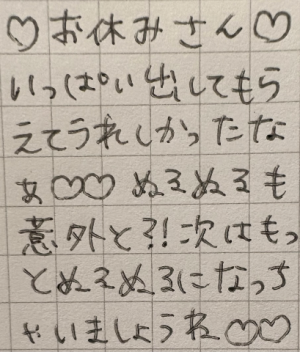 ♡お休みさん♡
いっぱい出してもら
えてうれしかったな
ぁ♡♡ぬるぬるも
意外と?!次はもっ
とぬるぬるになっち
ゃいましょうね♡♡